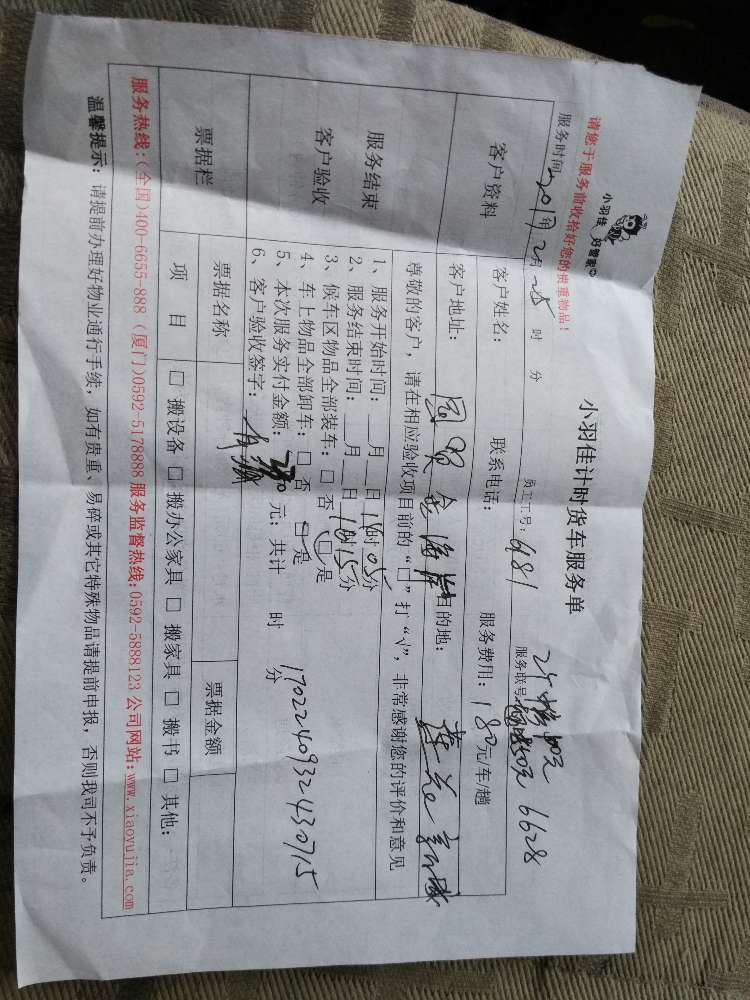 小羽佳 好管家
小羽佳计时货车服务单
请您于服务前收拾好您的贵重物品!
服务时间: 2017年2月25 时 分 员工工号: 981 服务联号: 6628
客户资料 客户姓名: 联系电话: 服务费用: 180元/车/趟
客户地址: 国贸金海岸 目的地:
服务结束 客户验收
尊敬的客户,请在相应验收项目前的“□”打“√”,非常感谢您的评价和意见
1、服务开始时间: 月 日 时05分
2、服务结束时间: 月 日 时15分
3、候车区物品全部装车: □ 否 □ 是
4、车上物品全部卸车: □ 否 □ 是
5、本次服务实付金额: 元: 共计 时 分
1702240932430715
6、客户验收签字:
票据栏 票据名称 票据金额
项 目 □ 搬设备 □ 搬办公家具 □ 搬家具 □ 搬书 □ 其他:
服务热线:(全国)400-6655-888 (厦门)0592-5178888 服务监督热线:0592-5888123 公司网站:www.xiaoyujia.com
温馨提示: 请提前办理好物业通行手续, 如有贵重、易碎或其它特殊物品请提前申报, 否则我司不予负责。